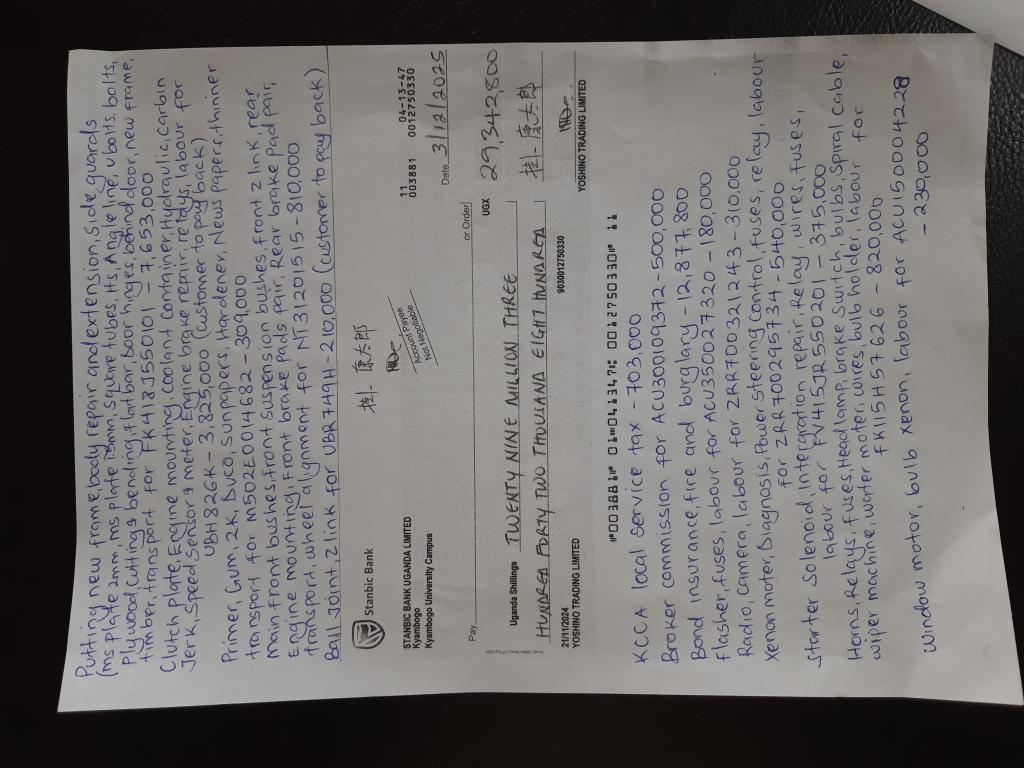 Putting new frame, body repair and extension, side guards
(ms plate 2mm, ms plate 1.5mm, Square tubes, Hs, Angle line, ubolts, bolts,
Plywood, Cutting & bending, flat bar, Door hinges, behind door, new frame,
timber, transport for FK418J550101 - 7,653,000
Clutch Plate, Engine mounting, coolant container, Hydraulic, carbin
Jerk, Speed, Sensor & meter, Engine brake repair, relays, labour for
UBH826K - 3,825,000 (Customer to pay back)
Primer, Gum, 2K, Duco, Sunpapers, Hardener, News papers, thinner
transport for M502E0014682 - 309,000
main front bushes, front suspension bushes, front z link, rear
Engine mounting, front brake pads pair, Rear brake pad pair,
transport, wheel alignment for NT312015115 - 810,000
Ball joint, z link for UBR749H - 210,000 (customer to pay back)
Stanbic Bank
掛 康太郎
Account Payee
Not Negotiable
STANBIC BANK UGANDA LIMITED
Kyambogo
Kyambogo University Campus
11 04-13-47
003881 0012750330
Date 3/12/2025
Pay or Order
Uganda Shillings TWENTY NINE MILLION THREE
UGX 29,342,800
HUNDRED FORTY TWO THOUSAND EIGHT HUNDRED
掛 康太郎
21/11/2024
YOSHINO TRADING LIMITED
9030012750330
YOSHINO TRADING LIMITED
"003881" 01"041347: 0012750330" 11
KCCA local service tax - 703,000
Broker commission for ACU300109372 - 500,000
Bond insurance, fire and burglary - 12,877,800
Flasher, fuses, labour for ACU350027320 - 180,000
Radio, camera, labour for ZRR700321243 - 310,000
Xenon moter, Diagnosis, Power steering control, fuses, relay, labour
for ZRR700295734 - 540,000
Starter Solenoid, Integration repair, Relay, wires, fuses,
labour for FV415JR550201 - 375,000
Horns, Relays, fuses, Headlamp, brake switch, bulbs, Spiral cable,
wiper machine, water moter, wires, bulb holder, labour for
FK115H57626 - 820,000
Window motor, bulb xenon, labour for ACU150004228
- 230,000